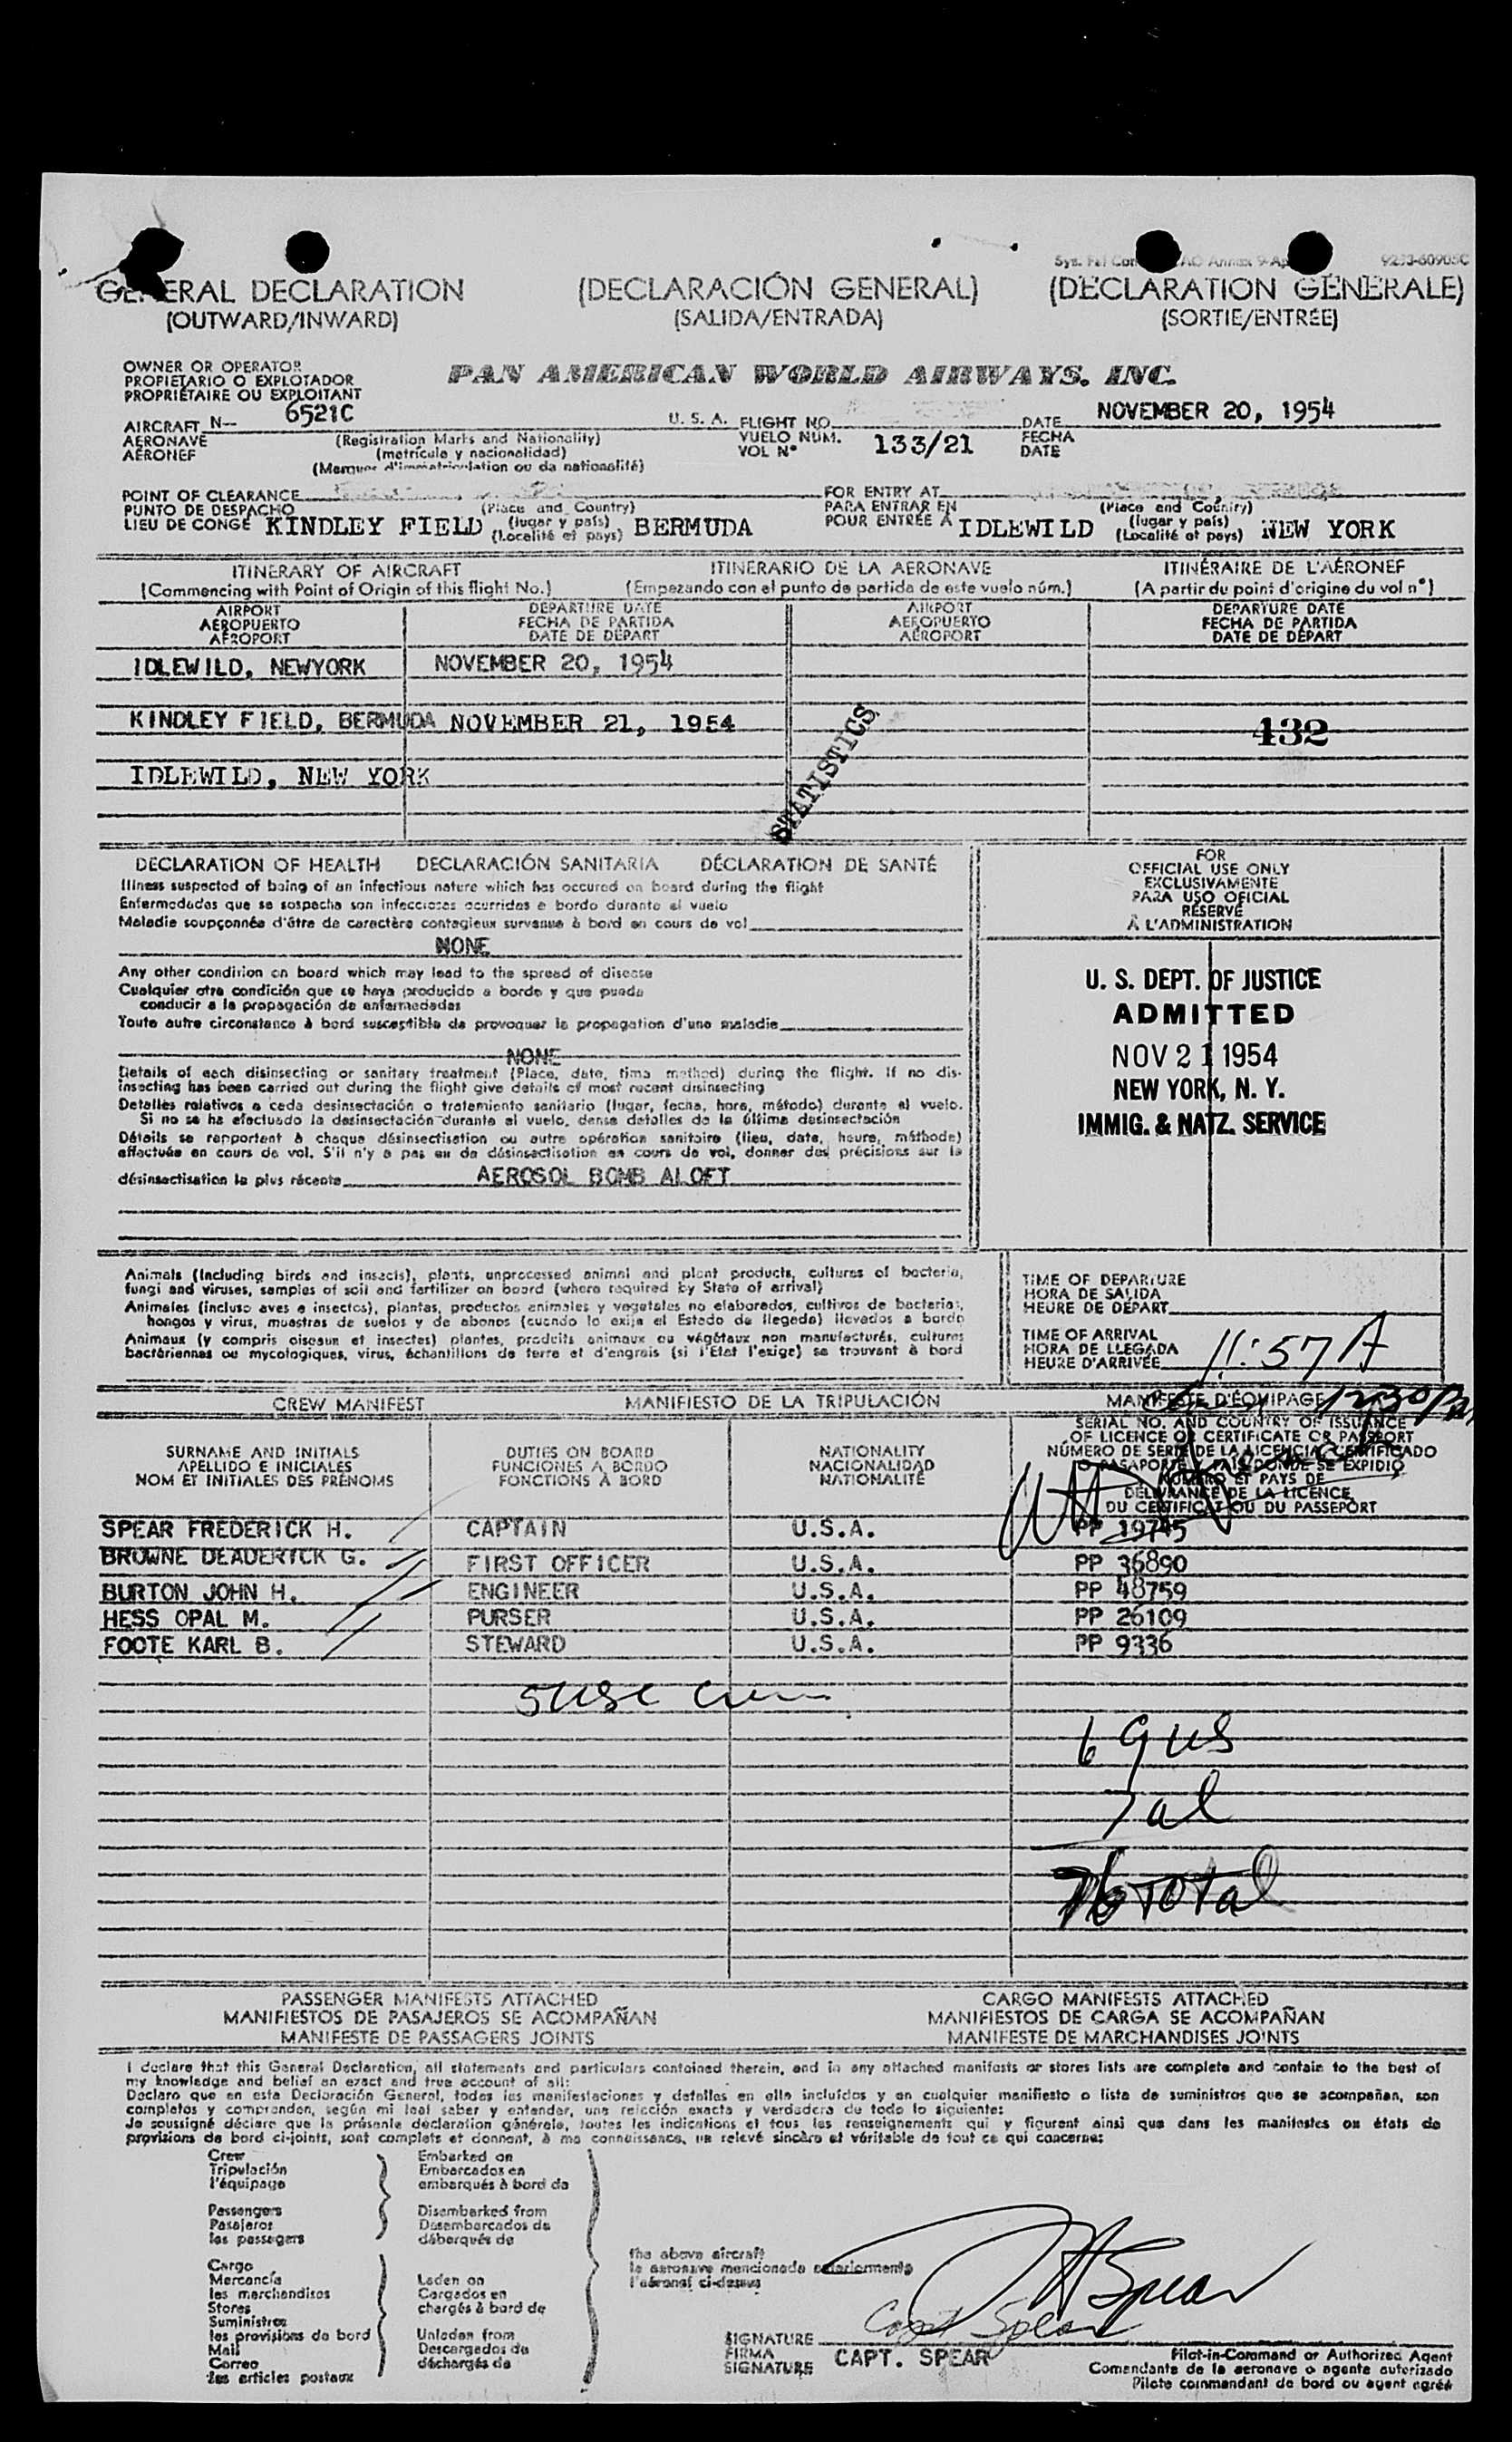 GENERAL DECLARATION (DECLARACIÓN GENERAL) (DÉCLARATION GÉNÉRALE)
(OUTWARD/INWARD) (SALIDA/ENTRADA) (SORTIE/ENTRÉE)
OWNER OR OPERATOR
PROPIETARIO O EXPLOTADOR
PROPRIÉTAIRE OU EXPLOITANT
PAN AMERICAN WORLD AIRWAYS, INC.
AIRCRAFT N-- 6521C U. S. A. FLIGHT NO. 133/21 DATE NOVEMBER 20, 1954
AERONAVE (Registration Marks and Nationality) VUELO NÚM. FECHA
AÉRONEF (matrícula y nacionalidad) VOL Nº DATE
(Marques d'immatriculation ou da nationalité)
POINT OF CLEARANCE FOR ENTRY AT
PUNTO DE DESPACHO (Place and Country) PARA ENTRAR EN (Place and Country)
LIEU DE CONGÉ KINDLEY FIELD (lugar y país) BERMUDA POUR ENTRÉE À IDLEWILD (lugar y país) NEW YORK
(Localité et pays) (Localité et pays)
ITINERARY OF AIRCRAFT ITINERARIO DE LA AERONAVE ITINÉRAIRE DE L'AÉRONEF
(Commencing with Point of Origin of this flight No.) (Empezando con el punto de partida de este vuelo núm.) (A partir du point d'origine du vol nº)
AIRPORT DEPARTURE DATE AIRPORT DEPARTURE DATE
AEROPUERTO FECHA DE PARTIDA AEROPUERTO FECHA DE PARTIDA
AÉROPORT DATE DE DÉPART AÉROPORT DATE DE DÉPART
IDLEWILD, NEWYORK NOVEMBER 20, 1954
KINDLEY FIELD, BERMUDA NOVEMBER 21, 1954
432
IDLEWILD, NEW YORK
STATISTICS
DECLARATION OF HEALTH DECLARACIÓN SANITARIA DÉCLARATION DE SANTÉ
Illness suspected of being of an infectious nature which has occured on board during the flight
Enfermedades que se sospecha son infecciosas ocurridas a bordo durante el vuelo
Maladie soupçonnée d'être de caractère contagieux survenue à bord en cours de vol
NONE
Any other condition on board which may lead to the spread of disease
Cualquier otra condición que se haya producido a bordo y que pueda
conducir a la propagación de enfermedades
Toute autre circonstance à bord susceptible de provoquer la propagation d'une maladie
NONE
Details of each disinsecting or sanitary treatment (Place, date, time method) during the flight. If no dis-
insecting has been carried out during the flight give details of most recent disinsecting
Detalles relativos a cada desinsectación o tratamiento sanitario (lugar, fecha, hora, método) durante el vuelo.
Si no se ha efectuado la desinsectación durante el vuelo, dense detalles de la última desinsectación
Détails se rapportant à chaque désinsectisation ou autre opération sanitaire (lieu, date, heure, méthode)
effectuée en cours de vol. S'il n'y a pas eu de désinsectisation en cours de vol, donner des précisions sur la
désinsectisation la plus récente AEROSOL BOMB ALOFT
FOR
OFFICIAL USE ONLY
EXCLUSIVAMENTE
PARA USO OFICIAL
RÉSERVÉ
À L'ADMINISTRATION
U. S. DEPT. OF JUSTICE
ADMITTED
NOV 21 1954
NEW YORK, N. Y.
IMMIG. & NATZ. SERVICE
Animals (Including birds and insects), plants, unprocessed animal and plant products, cultures of bacteria,
fungi and viruses, samples of soil and fertilizer on board (where required by State of arrival)
Animales (incluso aves e insectos), plantas, productos animales y vegetales no elaborados, cultivos de bacterias,
hongos y virus, muestras de suelos y de abonos (cuando lo exija el Estado de llegada) llevados a bordo
Animaux (y compris oiseaux et insectes) plantes, produits animaux ou végétaux non manufacturés, cultures
bactériennes ou mycologiques, virus, échantillons de terre et d'engrais (si l'État l'exige) se trouvant à bord
TIME OF DEPARTURE
HORA DE SALIDA
HEURE DE DÉPART
TIME OF ARRIVAL
HORA DE LLEGADA
HEURE D'ARRIVÉE 11:57 A
CREW MANIFEST MANIFIESTO DE LA TRIPULACIÓN MANIFESTE D'ÉQUIPAGE
SURNAME AND INITIALS DUTIES ON BOARD NATIONALITY
APELLIDO E INICIALES FUNCIONES A BORDO NACIONALIDAD
NOM ET INITIALES DES PRÉNOMS FONCTIONS À BORD NATIONALITÉ
SERIAL NO. AND COUNTRY OF ISSUANCE
OF LICENCE OR CERTIFICATE OR PASSPORT
NÚMERO DE SERIE DE LA LICENCIA, CERTIFICADO
O PASAPORTE Y PAÍS DONDE SE EXPIDIÓ
NUMÉRO ET PAYS DE
DÉLIVRANCE DE LA LICENCE,
DU CERTIFICAT OU DU PASSEPORT
SPEAR FREDERICK H. CAPTAIN U.S.A. PP 19745
BROWNE DEADERICK G. FIRST OFFICER U.S.A. PP 36890
BURTON JOHN H. ENGINEER U.S.A. PP 48759
HESS OPAL M. PURSER U.S.A. PP 26109
FOOTE KARL B. STEWARD U.S.A. PP 9336
5 USC Crew
69 US
7 al
76 Total
PASSENGER MANIFESTS ATTACHED CARGO MANIFESTS ATTACHED
MANIFIESTOS DE PASAJEROS SE ACOMPAÑAN MANIFIESTOS DE CARGA SE ACOMPAÑAN
MANIFESTE DE PASSAGERS JOINTS MANIFESTE DE MARCHANDISES JOINTS
I declare that this General Declaration, all statements and particulars contained therein, and in any attached manifests or stores lists are complete and contain to the best of
my knowledge and belief an exact and true account of all:
Declaro que en esta Declaración General, todas las manifestaciones y detalles en ella incluídos y en cualquier manifiesto o lista de suministros que se acompañan, son
completos y comprenden, según mi leal saber y entender, una relación exacta y verdadera de todo lo siguiente:
Je soussigné déclare que la présente déclaration générale, toutes les indications et tous les renseignements qui y figurent ainsi que dans les manifestes ou états de
provisions de bord ci-joints, sont complets et donnent, à ma connaissance, un relevé sincère et véritable de tout ce qui concerne:
Crew Embarked on
Tripulación Embarcados en
l'équipage embarqués à bord de
Passengers Disembarked from
Pasajeros Desembarcados de
les passagers débarqués de
Cargo
Mercancía Laden on
les marchandises Cargados en
Stores chargés à bord de
Suministros
les provisions de bord Unladen from
Mail Descargados de
Correo déchargés de
les articles postaux
the above aircraft
la aeronave mencionada anteriormente
l'aéronef ci-dessus
Capt Spear
SIGNATURE
FIRMA CAPT. SPEAR
SIGNATURE
Pilot-in-Command or Authorized Agent
Comandante de la aeronave o agente autorizado
Pilote commandant de bord ou agent agréé